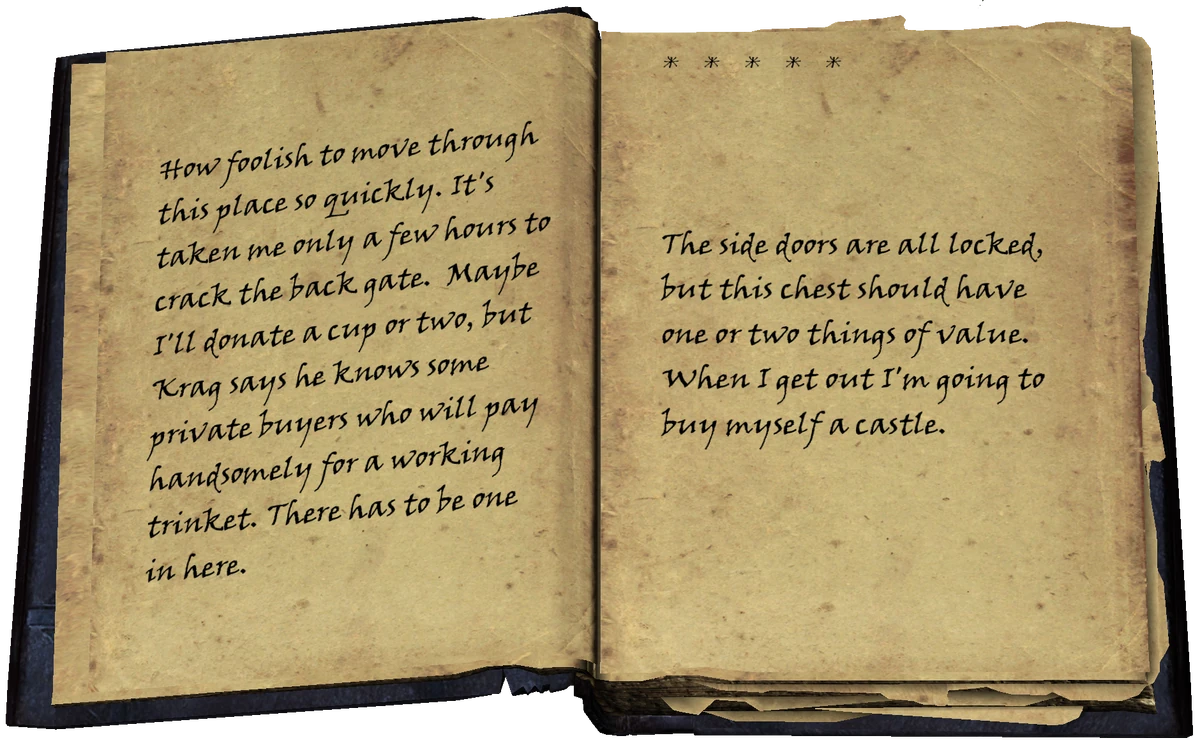 How foolish to move through
this place so quickly. It's
taken me only a few hours to
crack the back gate. Maybe
I'll donate a cup or two, but
Krag says he knows some
private buyers who will pay
handsomely for a working
trinket. There has to be one
in here.
* * * * *
The side doors are all locked,
but this chest should have
one or two things of value.
When I get out I'm going to
buy myself a castle.